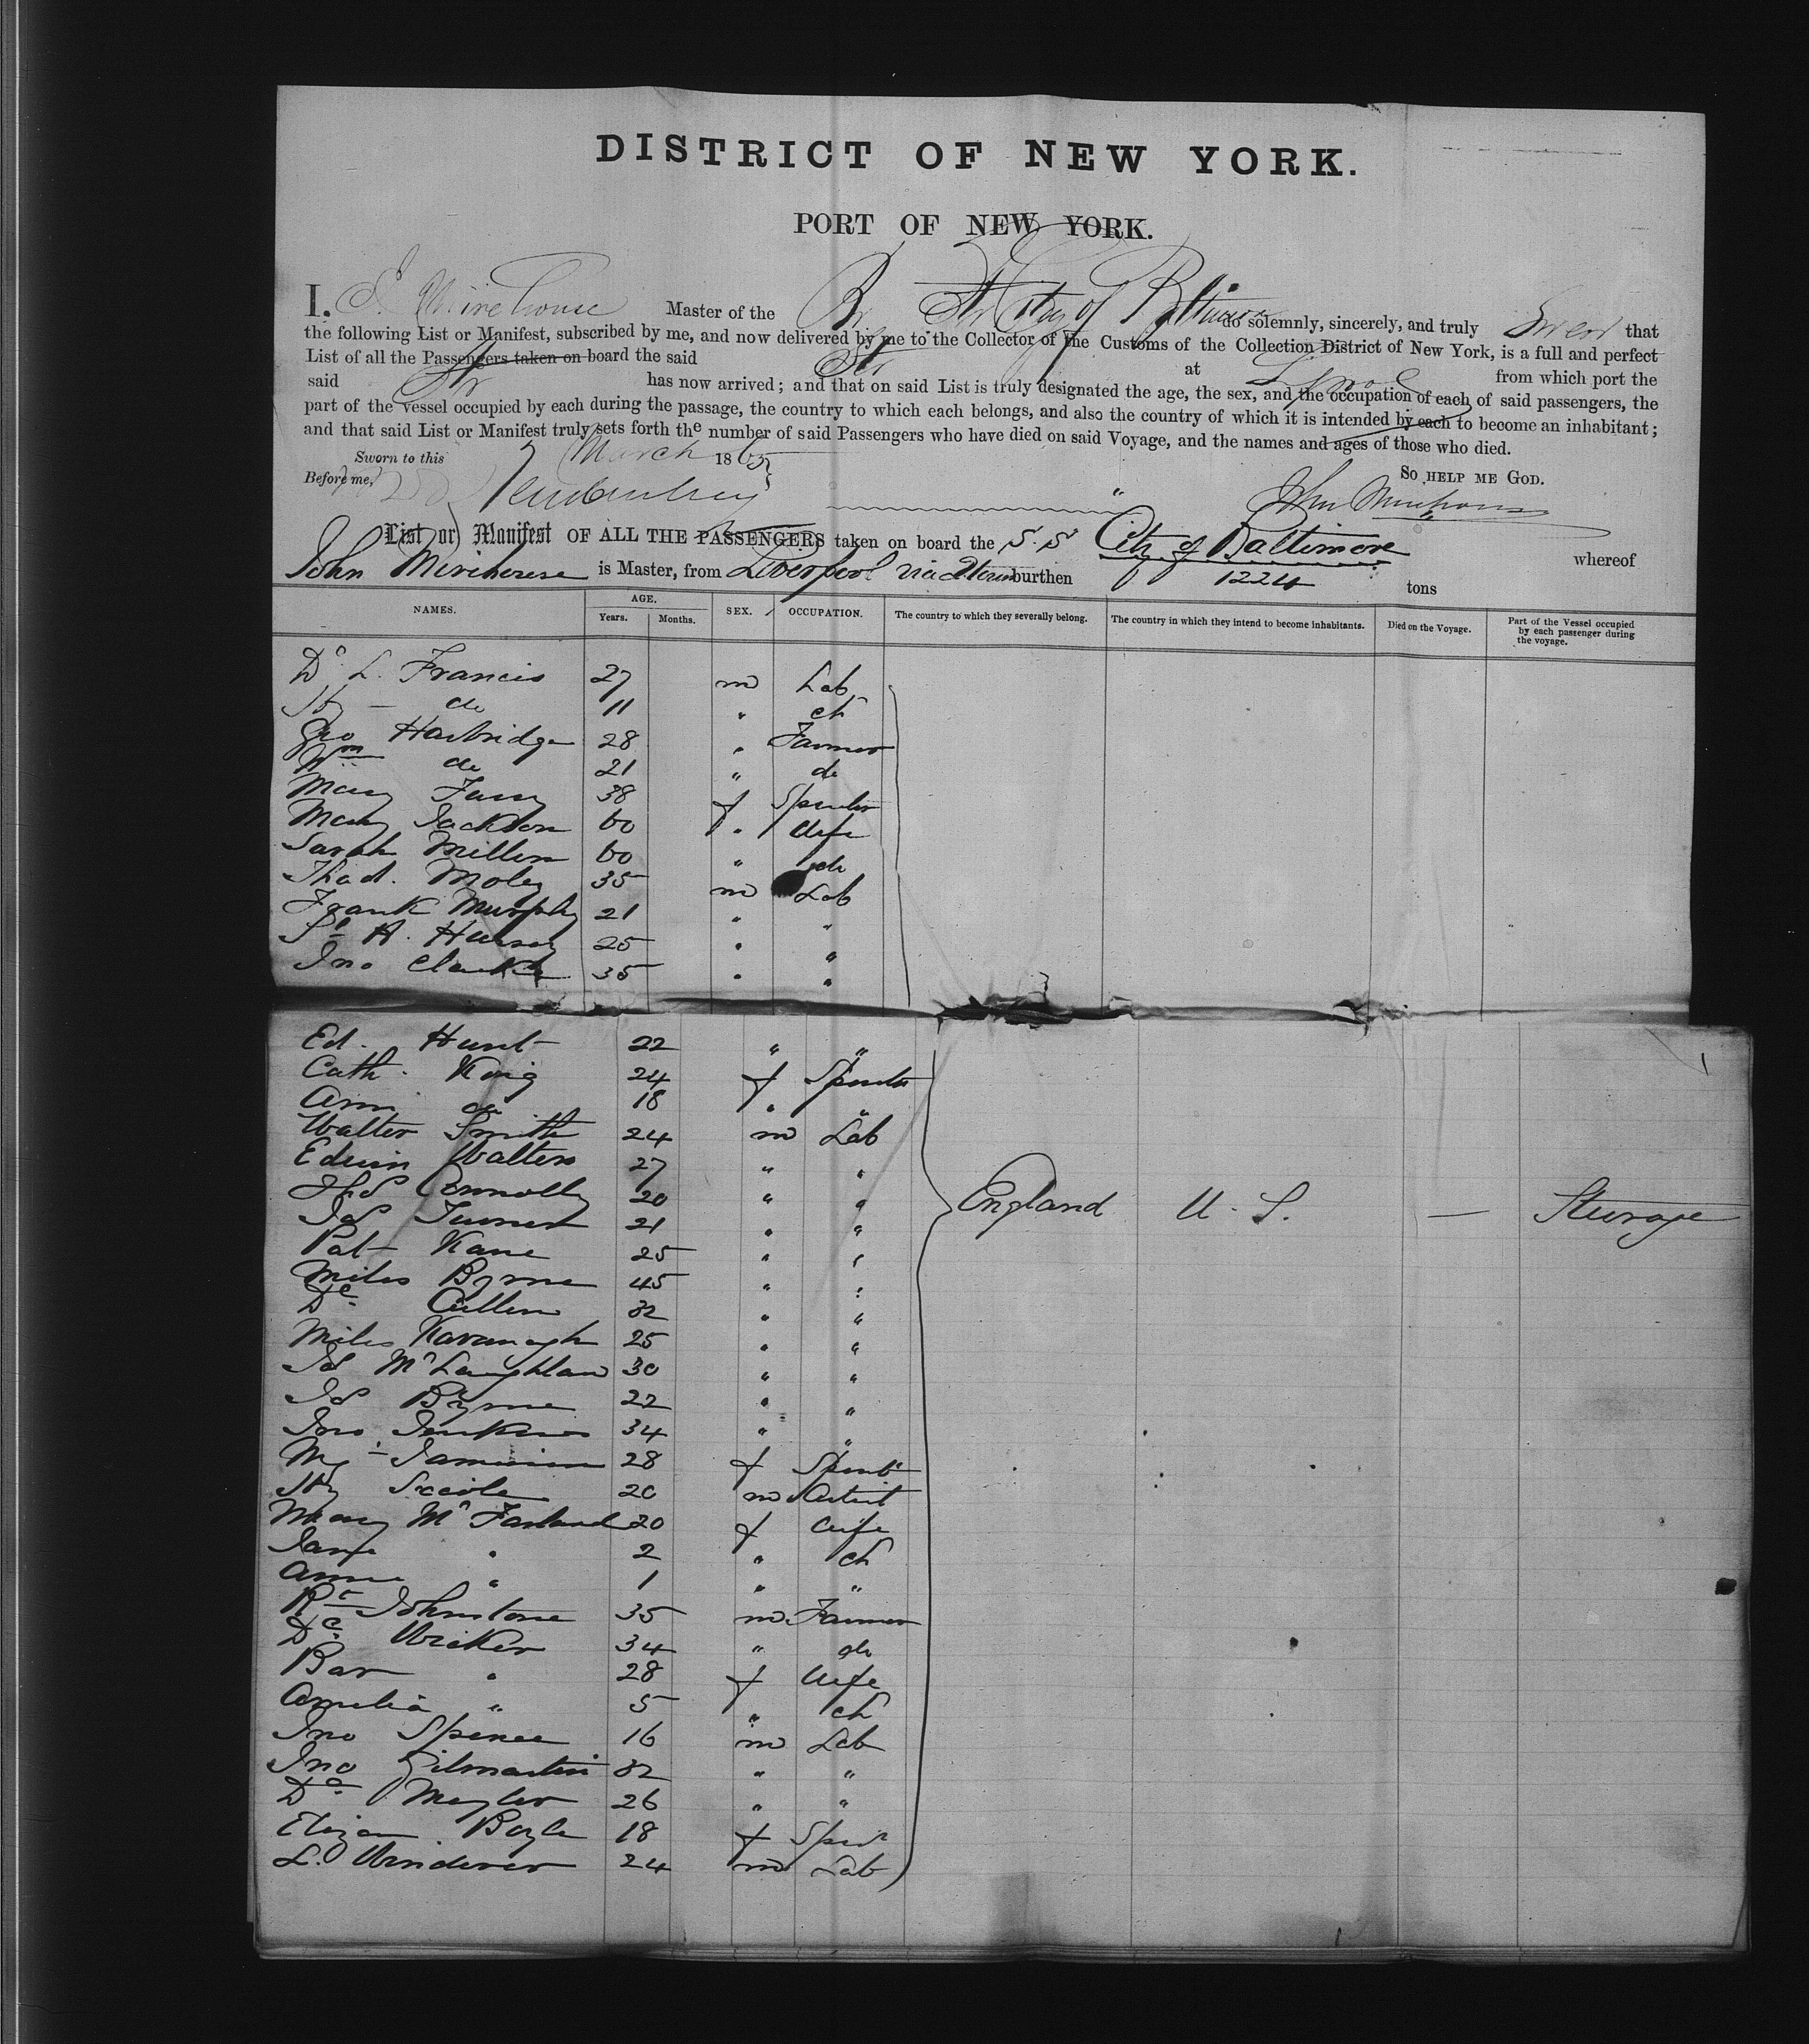 DISTRICT OF NEW YORK.
PORT OF NEW YORK.
I. J. Mirehouse Master of the Br Str City of Baltimore do solemnly, sincerely, and truly Swear that
the following List or Manifest, subscribed by me, and now delivered by me to the Collector of the Customs of the Collection District of New York, is a full and perfect
List of all the Passengers taken on board the said Str at L'pool from which port the
said Str has now arrived; and that on said List is truly designated the age, the sex, and the occupation of each of said passengers, the
part of the vessel occupied by each during the passage, the country to which each belongs, and also the country of which it is intended by each to become an inhabitant;
and that said List or Manifest truly sets forth the number of said Passengers who have died on said Voyage, and the names and ages of those who died.
Sworn to this 7 March 1865
So HELP ME GOD.
Before me,
John Mirehouse
List or Manifest OF ALL THE PASSENGERS taken on board the S.S City of Baltimore whereof
John Mirehouse is Master, from Liverpool via burthen 1224 tons
NAMES. AGE. Years. Months. SEX. OCCUPATION. The country to which they severally belong. The country in which they intend to become inhabitants. Died on the Voyage. Part of the Vessel occupied by each passenger during the voyage.
Dl. L. Francis 27 m Lab
Hy — do 11 " ch
Geo Harbridge 28 " Farmer
Wm do 21 " do
Mary 38 f Spinster
Mary Jackson 60 " Wife
Sarah Millen 60 " do
Thad. Moley 35 m Lab
Frank Murphy 21 " "
A. 25 " "
Jno Clarke 35 " "
Ed. Hunt 22 " "
Cath. King 24 f Spinster
Ann do 18 " "
Walter Smith 24 m Lab
Edwin Walters 27 " "
Connolly 20 " "
Js Turner 21 " "
Pat Kane 25 " " England U.S. — Steerage
Miles Byrne 45 " "
Cullen 32 " "
Miles Kavanagh 25 " "
Js McLaughlan 30 " "
Js Byrne 22 " "
Jno Jenkins 34 " "
My Jamieson 28 f Spinst
Hy 20 m Artist
Mary McFarland 20 f Wife
Jane " 2 " ch
Anne " 1 " "
Rt Johnstone 35 m Farmer
Wicker 34 " do
Bar " 28 f Wife
Amelia " 5 " ch
Jno Spence 16 m Lab
Jno Gilmartin 32 " "
Meyler 26 " "
Eliza Boyle 18 f Spinr
L. Windever 24 m Lab